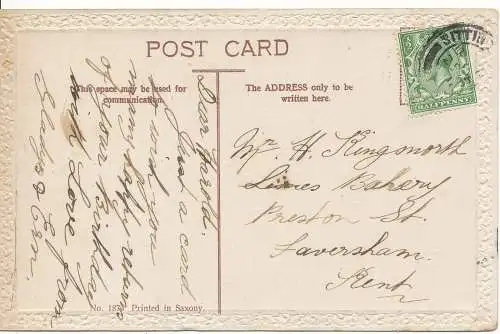 POST CARD
This space may be used for
communication.
The ADDRESS only to be
written here.
HALFPENNY
Dear Harold.
Just a card
to wish you
many happy returns
of your Birthday
with Love from
Gladys & Cen.
Mr. H. Kingsnorth
Limes Bakery
Preston St.
Faversham.
Kent.
Printed in Saxony